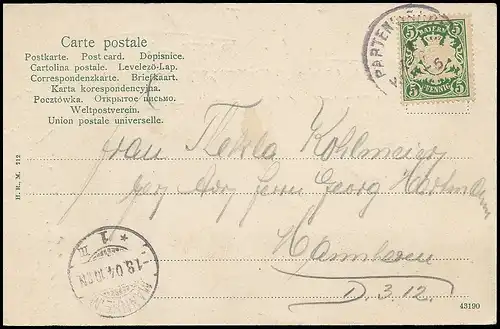 Carte postale
Postkarte. Post card. Dopisnice.
Cartolina postale. Levelező-Lap.
Correspondenzkarte. Briefkaart.
Karta korespondencyjna.
Pocztówka. Открытое письмо.
Weltpostverein.
Union postale universelle.
5 BAYERN 5
5 PFENNIG 5
PARTEN
H. R. M. 212
Frau Thekla Kohlmeier
per Adr. Herrn Georg Hartmann
Mannheim
D. 3. 12.
1
1.8.04.10
43190